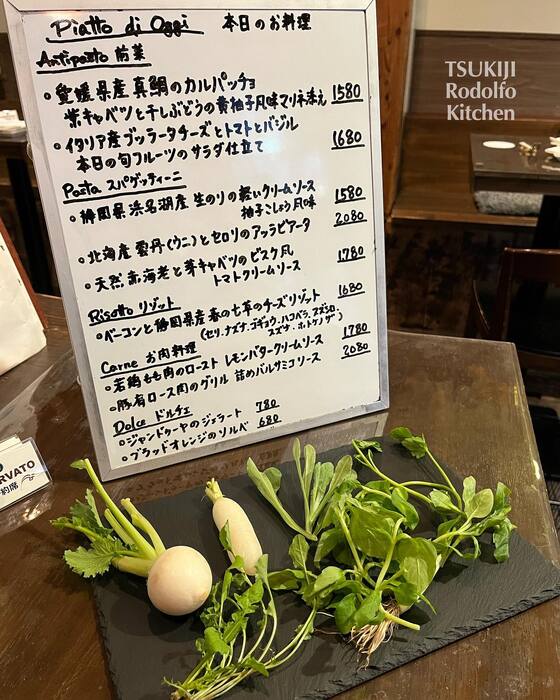 Piatto di Oggi 本日のお料理
Antipasto 前菜
TSUKIJI
Rodolfo
Kitchen
○愛媛県産真鯛のカルパッチョ
紫キャベツと干しぶどうの黄柚子風味マリネ添え 1580
○イタリア産ブッラータチーズとトマトとバジル
本日の旬フルーツのサラダ仕立て 1680
Pasta スパゲッティーニ
○静岡県浜名湖産 生のりの軽いクリームソース
柚子こしょう風味 1580
○北海産雲丹(ウニ)とセロリのアッラビアータ 2080
○天然赤海老と芽キャベツのビスク風
トマトクリームソース 1780
Risotto リゾット
○ベーコンと静岡県産春の七草のチーズリゾット 1680
(セリ、ナズナ、ゴギョウ、ハコベラ、スズシロ、
スズナ、ホトケノザ)
Carne お肉料理
○若鶏もも肉のロースト レモンバタークリームソース 1780
○豚肩ロース肉のグリル 詰めバルサミコソース 2080
Dolce ドルチェ
○ジャンドゥーヤのジェラート 780
○ブラッドオレンジのソルベ 680
RVATO
約席